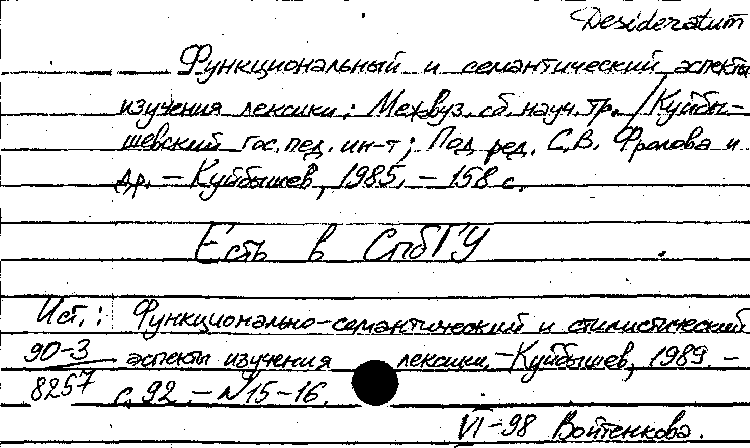 Desideratum
Функциональный и семантический аспекты
изучения лексики: Межвуз. сб. науч. тр. / Куйбы-
шевский гос. пед. ин-т; Под ред. С.В. Фролова и
др. – Куйбышев, 1985. – 158 с.
Есть в СпбГУ
Ист.: Функционально-семантический и стилистический
90-3 аспекты изучения лексики. – Куйбышев, 1989. –
8257 с. 92. – N 15-16.
VI-98 Войтенкова.